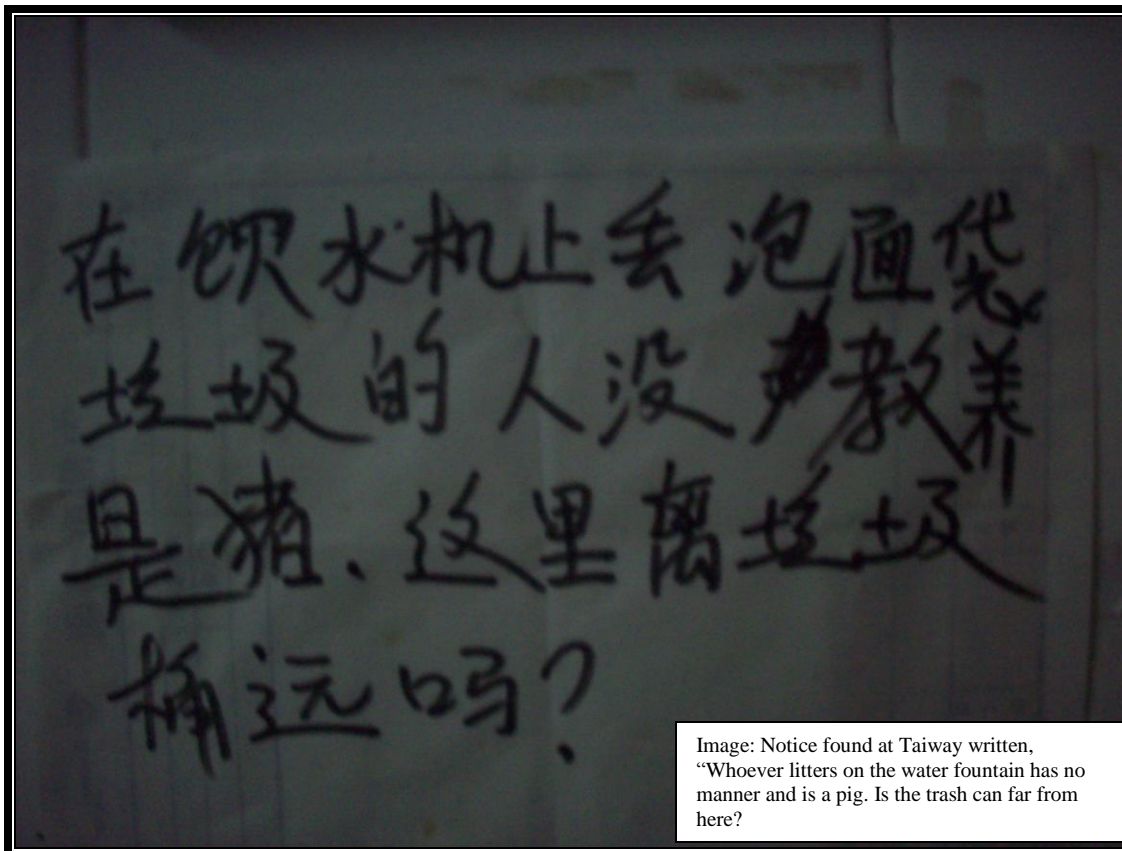 在饮水机上丢泡面袋
垃圾的人没教养
是猪、这里离垃圾
桶远吗?
Image: Notice found at Taiway written,
“Whoever litters on the water fountain has no
manner and is a pig. Is the trash can far from
here?